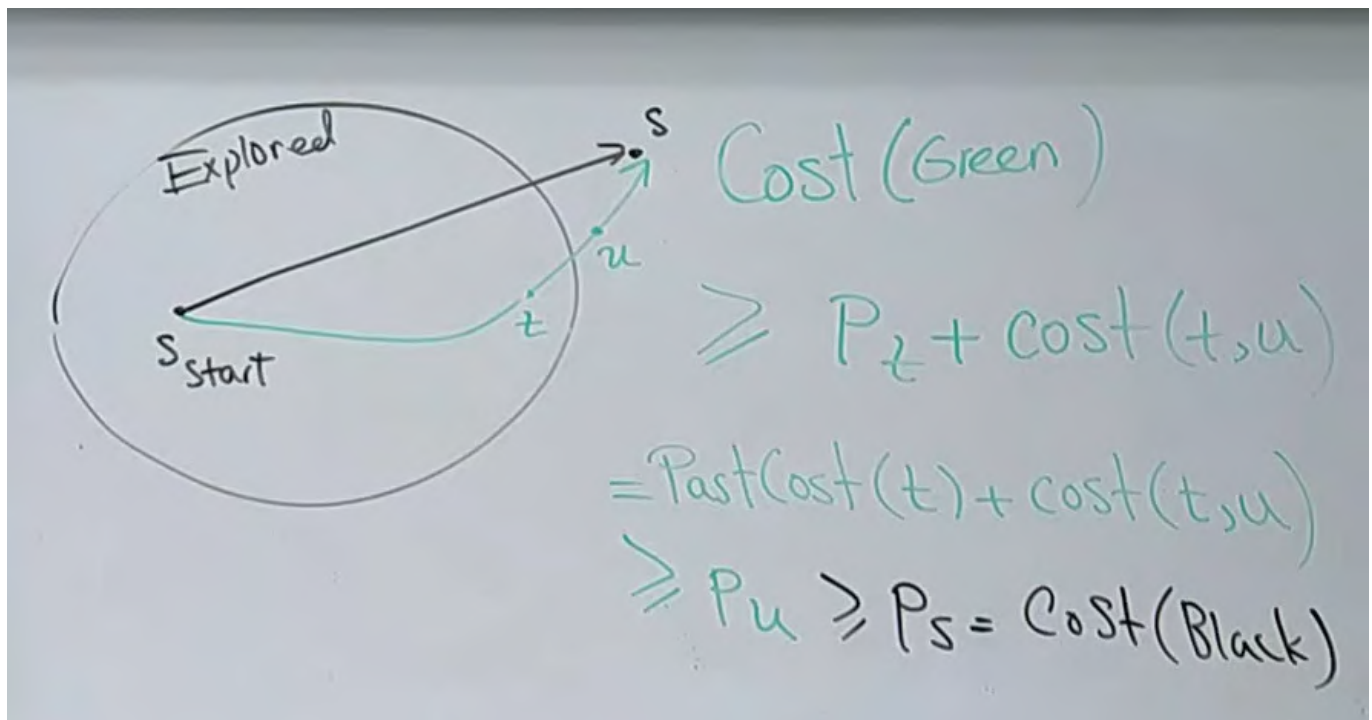 Explored
s
s start
t
u
Cost (Green)
≥ P_t + cost(t,u)
= PastCost(t) + cost(t,u)
≥ P_u ≥ P_s = Cost(Black)